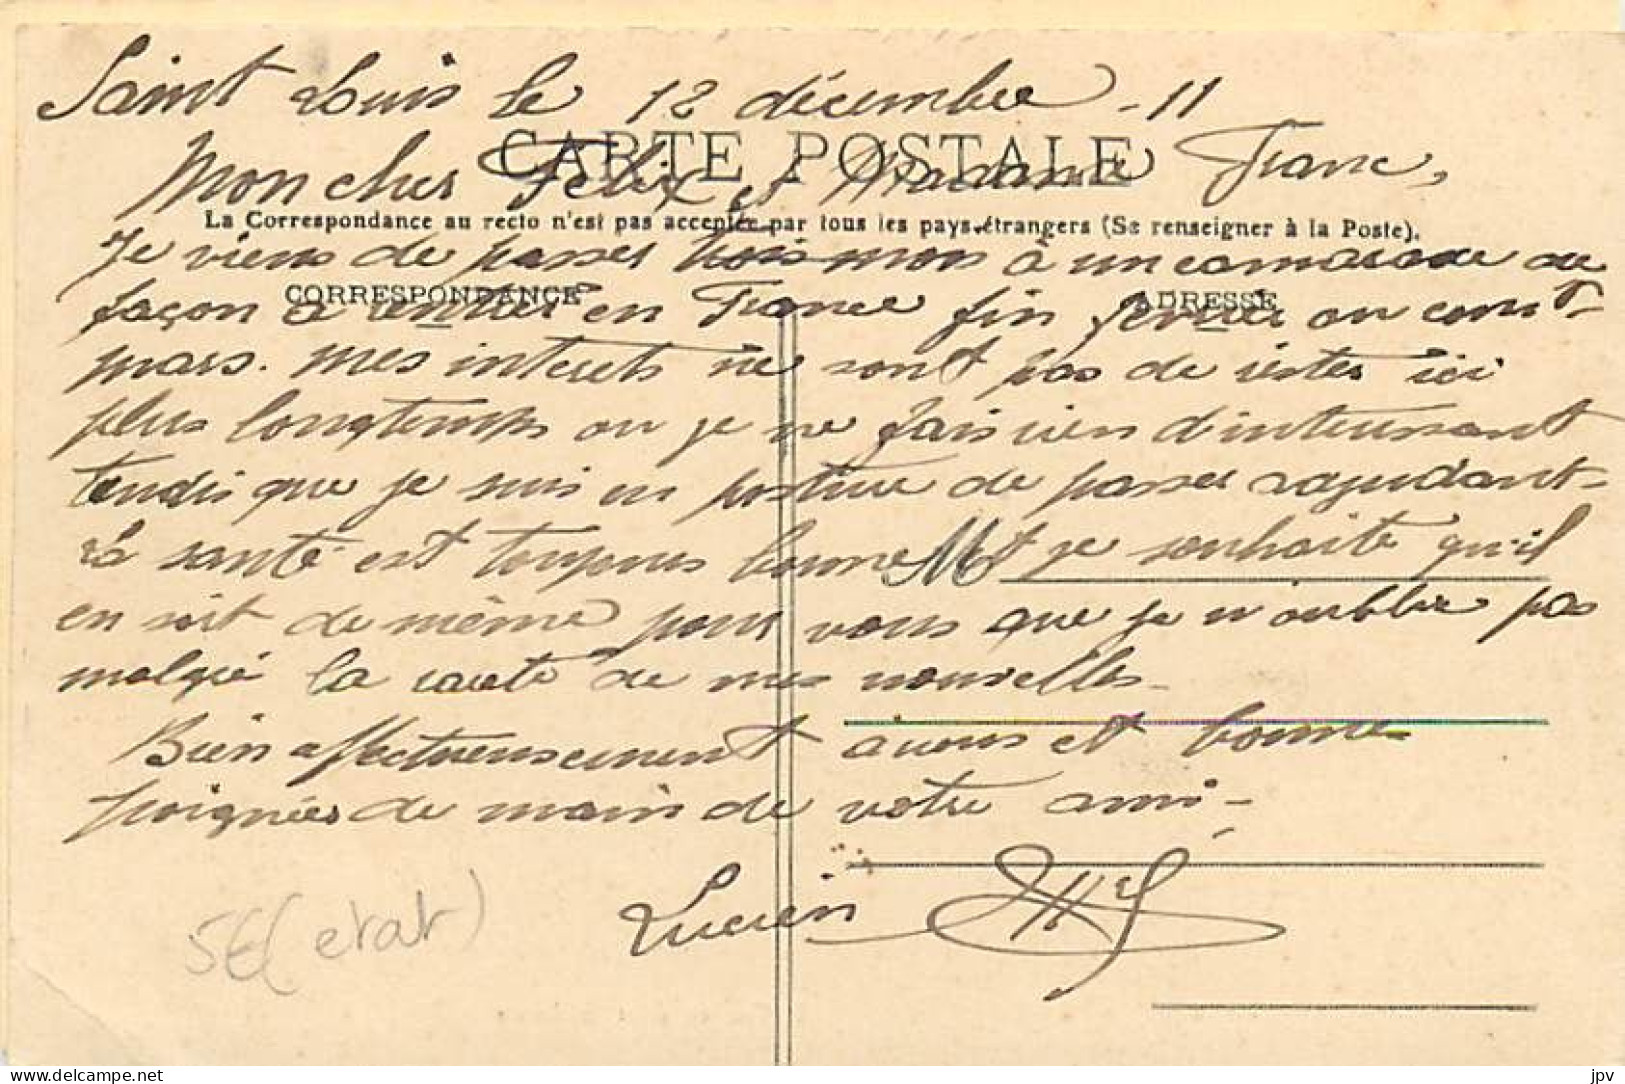 Saint Louis le 12 décembre - 11
CARTE POSTALE
Mon cher Félix et Madame Franc,
La Correspondance au recto n'est pas acceptée par tous les pays étrangers (Se renseigner à la Poste).
Je viens de passer trois mois à un camarade de
CORRESPONDANCE
ADRESSE
façon à rentrer en France fin février ou cour^t
mars. Mes interets ne sont pas de rester ici
plus longtemps ou je ne fais rien d'interessant
tendis que je suis en posture de passer rajudant-
La santé est toujours bonne et je souhaite qu'il
M
en soit de même pour vous que je n'oublie pas
malgré la rareté de mes nouvelles.
Bien affectueusement à vous et bonnes
poignées de main de votre ami -
Lucien
5€ (etat)
jpv